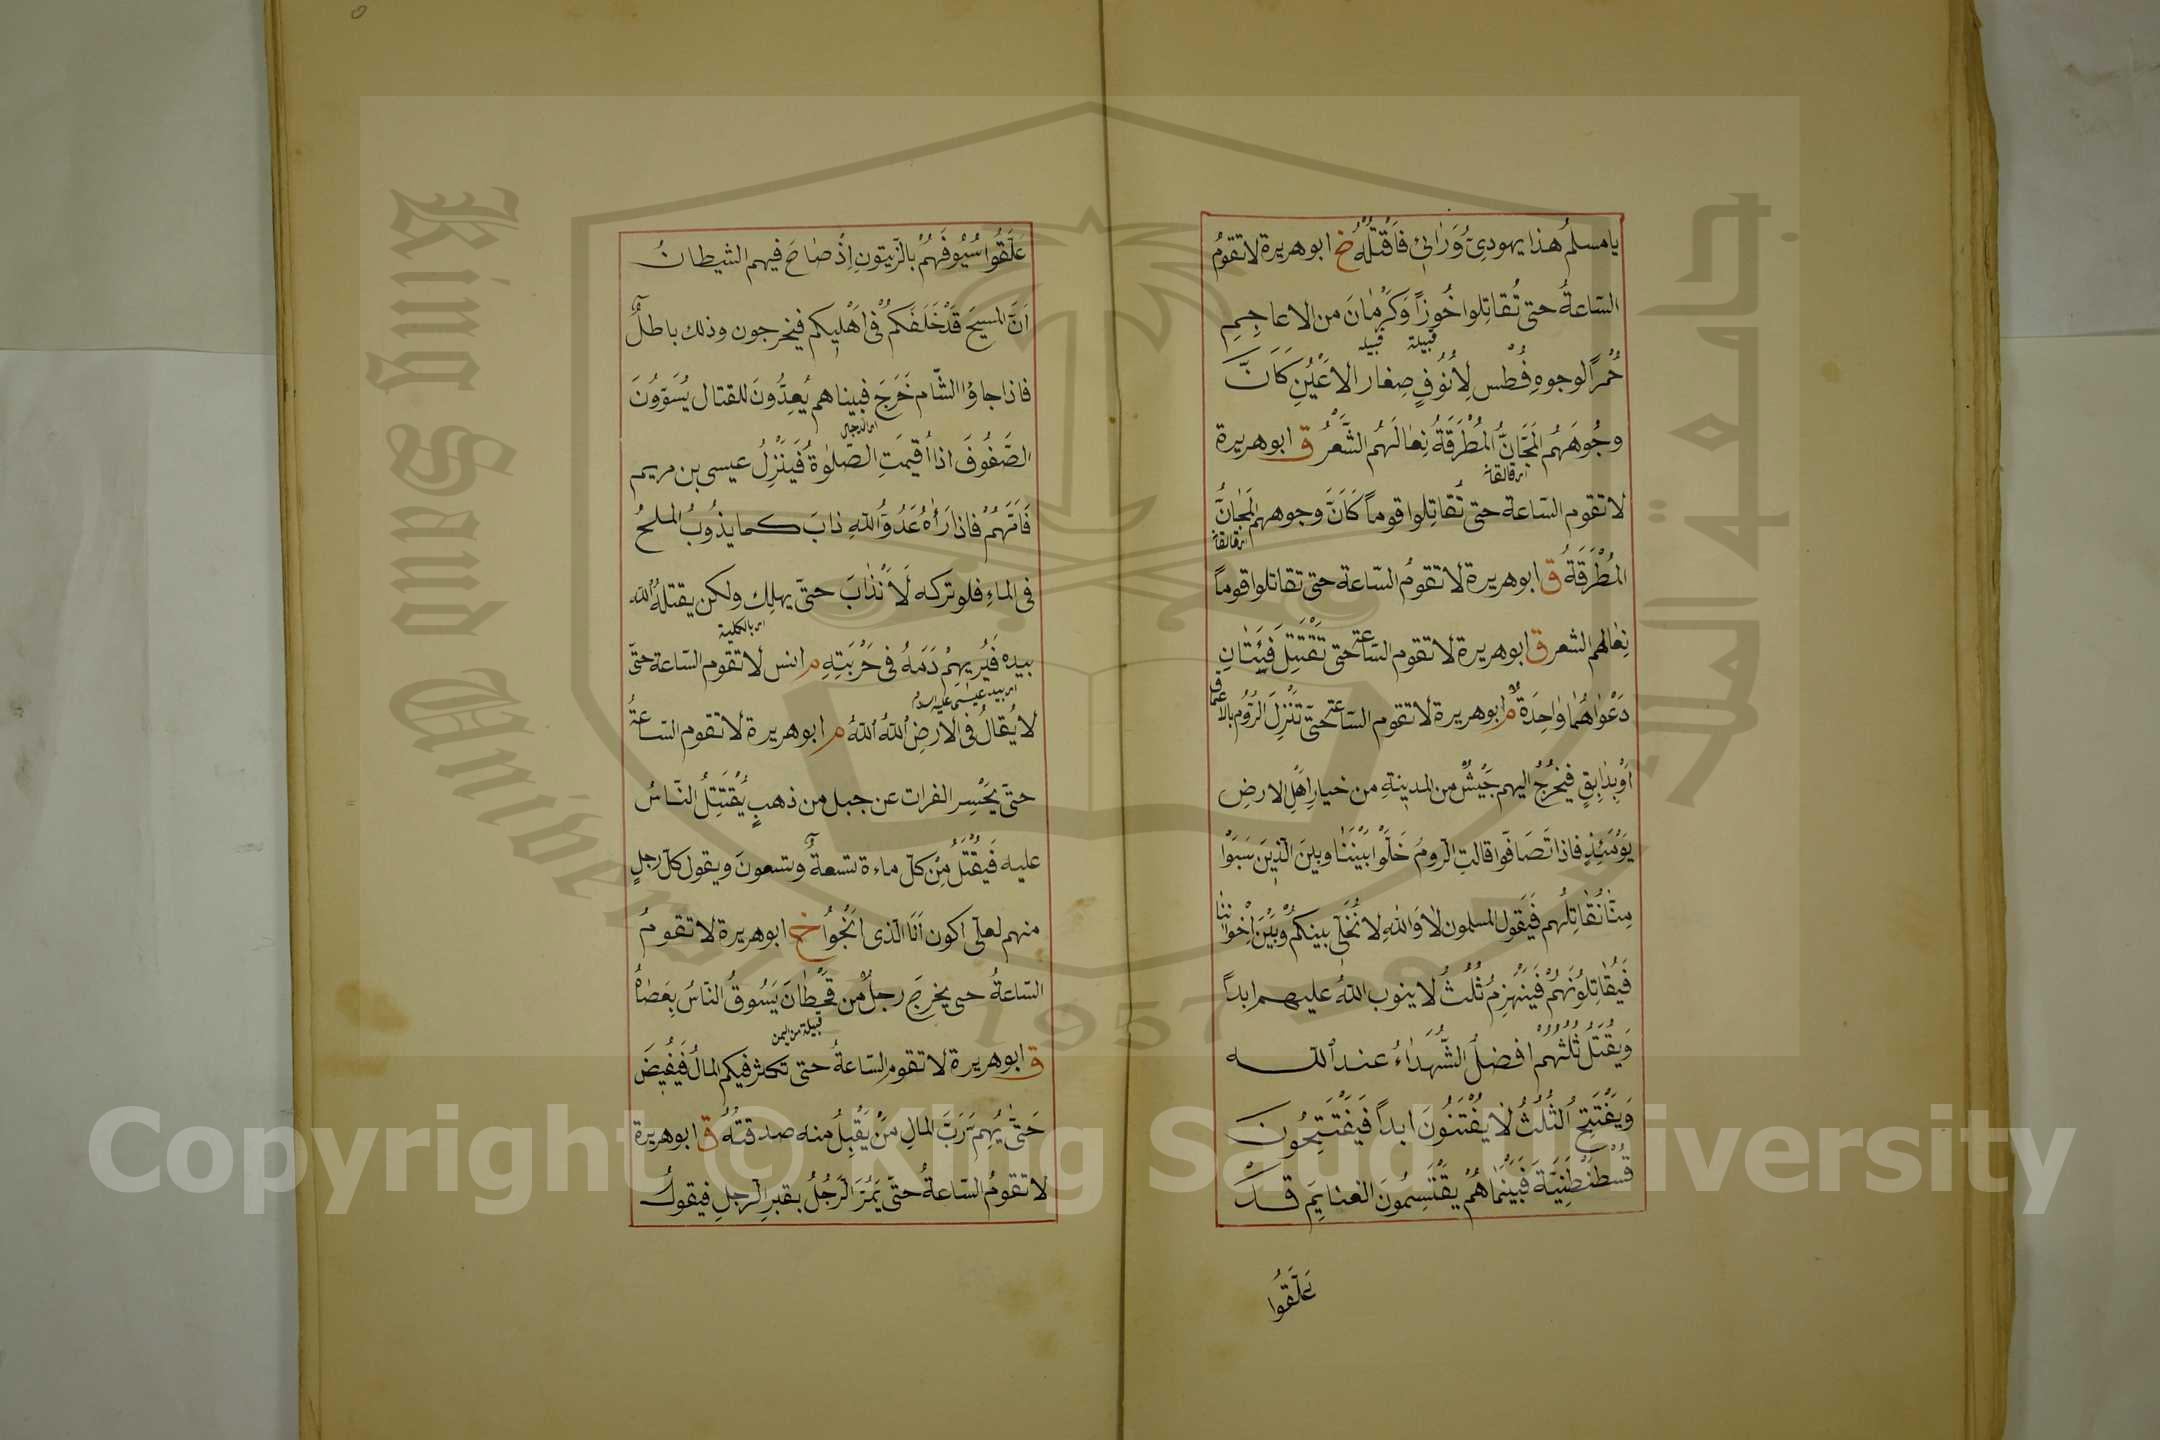 يا مسلمُ هذا يهوديٌ وَرائي فاَقْتُلْهُ خ ابو هريرة لا تقومُ
السّاعةُ حتى تُقاتِلوا خُوزاً وَكَرْمانَ من الاعاجِمِ
قبيلة قبيله
حُمْرَ الوجوهِ فُطْس لاُنُوفِ صِغار الاَعْيُنِ كَاَنَّ
وجُوهَهُم المَجَانُّ المُطْرَقَةُ نِعالَهُم الشَّعْرُ ق ابو هريرة
لا تقوم السّاعة حتى تُقاتِلوا قوماً كَاَنَّ وجوههم المَجانُّ
المُطْرَقَةُ ق ابو هريرة لا تقومُ السّاعة حتى تقاتلوا قوماً
نِعالهم الشعر ق ابو هريرة لا تقوم السّاعة حتى تَقْتَتِلَ فِئَتانِ
دَعْواهُما واحِدَةٌ م ابو هريرة لا تقوم السّاعة حتّى تَنْزِلَ الرُومُ بالاَعماق
اَوْ بِدابِقٍ فيَخْرُجُ اليهم جَيْشٌ من المدينةِ من خيارِ اَهْلِ الارضِ
يَوْمَئِذٍ فاذا تَصَافّوا قالتِ الرومُ خَلّوا بَيْنَنَا وبينَ الّذِينَ سَبَوْا
مِنّا نُقاتِلُهم فَيَقول المسلمون لا وَاللهِ لا نُخَلّى بينكُم وبَيْنَ اِخْواننا
فَيُقاتِلُونَهُمْ فَيَنْهَزِمُ ثُلُثٌ لا يتوب اللهُ عليهم ابداً
وَيُقْتَلُ ثُلُثُهُمْ افضلُ الشُّهَداءِ عند الله
وَيَفْتَتِحُ الثُلُثُ لا يُفْتَنُونَ ابداً فَيَفْتَتِحُونَ
قُسْطَنْطَنِيَّةَ فَبَيْنَما هُمْ يَقْتَسِمُونَ الغنايِمَ قد
عَلّقوا
عَلّقُوا سُيُوفَهُمْ بالزّيتونِ اِذْ صاحَ فيهم الشيطانُ
اَنَّ المسيحَ قَدْ خَلَفَكُمْ فى اَهْلِيكم فيخرجون وذلك باطلٌ
فاذا جاؤا الشّام خَرَجَ فبينا هم يُعِدُّونَ للقتال يُسَوّونَ
اى الدجال
الصّفُوفَ اذا اُقيمَتِ الصّلوةُ فَيَنْزِلُ عيسى بن مريم
فَاَمّهُمْ فاذا رَاٰهُ عَدُوُّ اللهِ ذابَ كما يذُوبُ الملحُ
فى الماءِ فلو تركه لاَنْذابَ حتّى يهلِك ولكن يقتلهُ الله
اى بالكلية
بيده فَيُريهِمْ دَمَهُ فى حَرْبَتِهِ م انس لا تقوم السّاعة حتّى
اى بيد عيسى عليه السلام
لا يُقالُ فى الارضِ اللهُ اللهُ م ابو هريرة لا تقوم السّاعةُ
حتّى يَحْسِر الفرات عن جبل من ذهبٍ يُقْتَتِلُ النّاسُ
عليه فَيُقْتَلُ مِن كلّ ماءة تسعةٌ وتسعونَ ويقول كلّ رجلٍ
منهم لعلّى اكون اَنَا الّذى اَنْجُوا خ ابو هريرة لا تقومُ
السّاعةُ حتى يخرجَ رجلٌ من قَحْطانَ يَسُوقُ النّاسُ بِعَصاهُ
قبيلة من اليمن
ق ابو هريرة لا تقوم السّاعةُ حتى تكثر فيكم المالُ فَيَفِيضَ
حَتّى يُهِم رَبّ المالِ مَنْ يَقْبِلُ منه صدقتُهُ ق ابو هريرة
لا تقومُ السّاعةُ حتّى يَمُرَّ الرّجُلُ بقبرِ الرّجلِ فيقولُ
King Saud University
جامعة الملك سعود
1957
Copyright © King Saud University